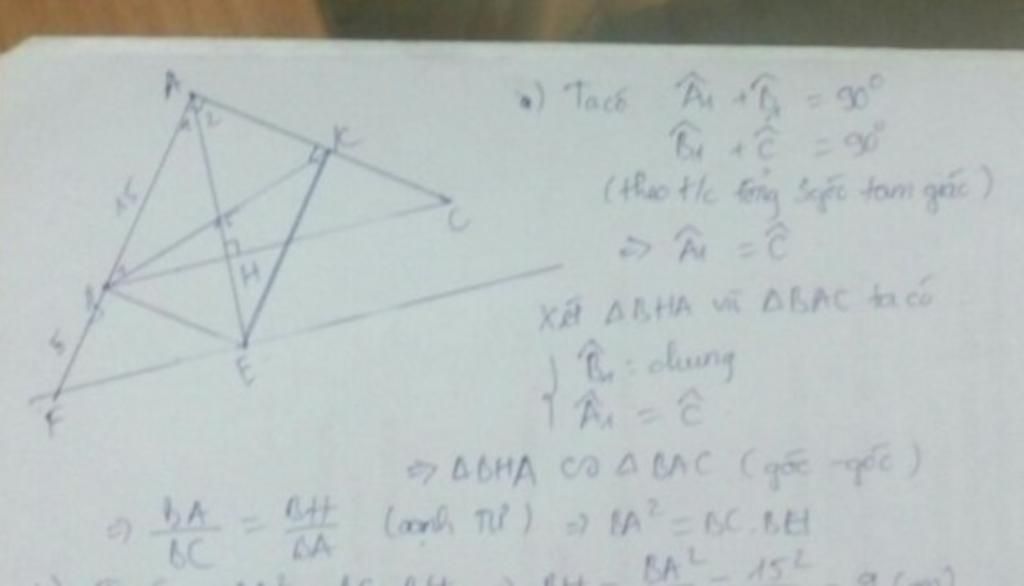 A
1 2
K
15
C
B
H
5
E
F
a) Ta có Â₁ + B̂₁ = 90°
B̂₁ + Ĉ = 90°
(theo t/c tổng 3 góc tam giác)
=> Â₁ = Ĉ
Xét ΔBHA và ΔBAC ta có
B̂₁ : chung
Â₁ = Ĉ
=> ΔBHA ∽ ΔBAC (góc - góc)
=> BA/BC = BH/BA (cạnh TƯ) => BA² = BC.BH
BH = BA² = 15² = 9 (cm)